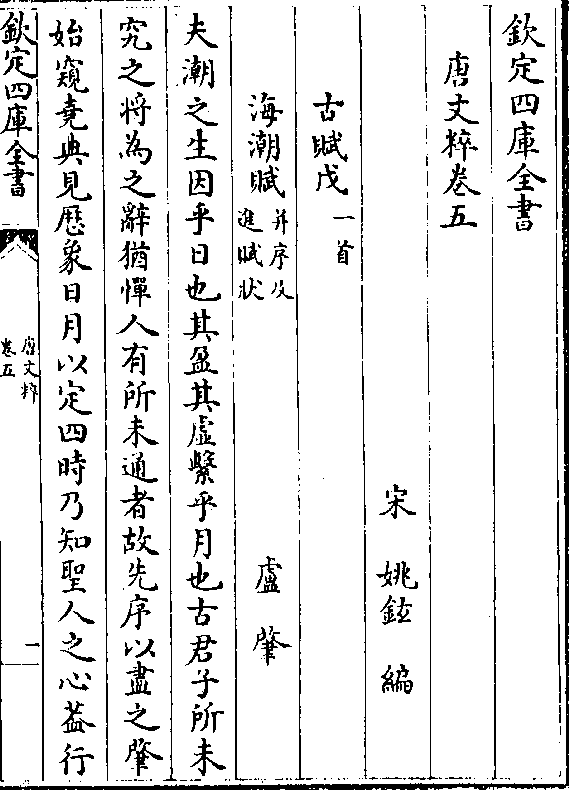 欽定四庫全書
唐文粹卷五
宋 姚鉉 編
古賦戊 一首
海潮賦 并序及進賦狀 盧肇
夫潮之生因乎日也其盈其虛繫乎月也古君子所未
究之将為之辭猶憚人有所未通者故先序以盡之肇
始窺堯典見厯象日月以定四時乃知聖人之心葢行
欽定四庫全書
唐文粹
卷五
一